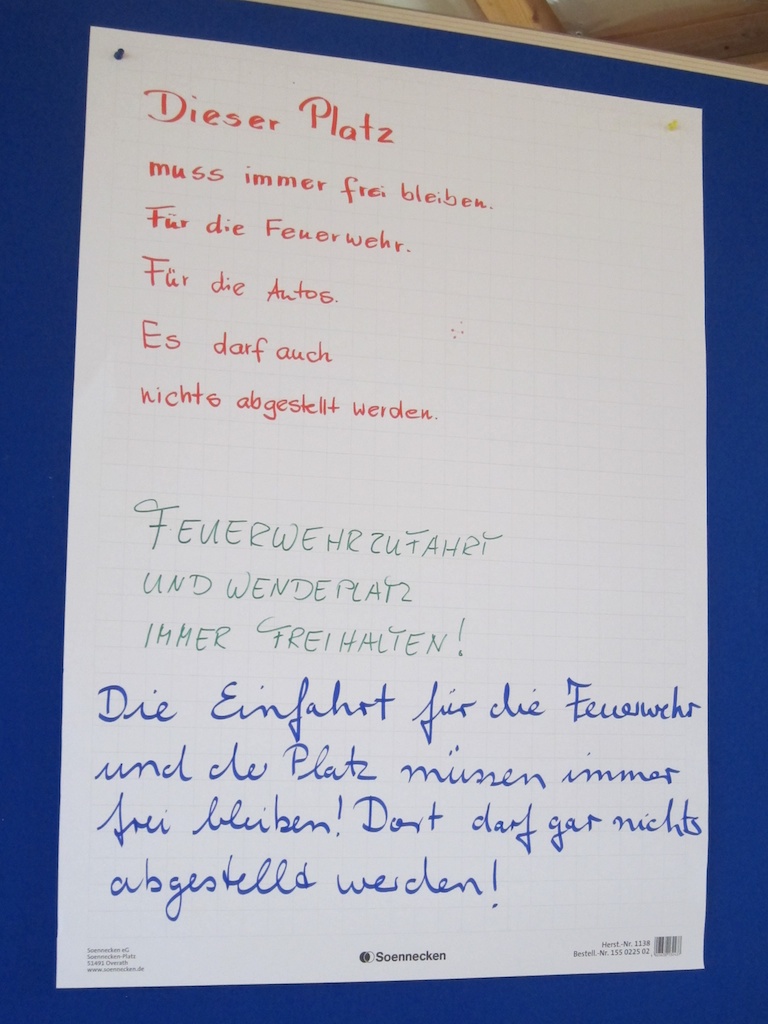 Dieser Platz
muss immer frei bleiben.
Für die Feuerwehr.
Für die Autos.
Es darf auch
nichts abgestellt werden.
FEUERWEHRZUFAHRT
UND WENDEPLATZ
IMMER FREIHALTEN!
Die Einfahrt für die Feuerwehr
und de Platz müssen immer
frei bleiben! Dort darf gar nichts
abgestellt werden!
Soennecken eG
Soennecken-Platz
51491 Overath
www.soennecken.de
Soennecken
Herst.-Nr. 1138
Bestell.-Nr. 155 0225 02